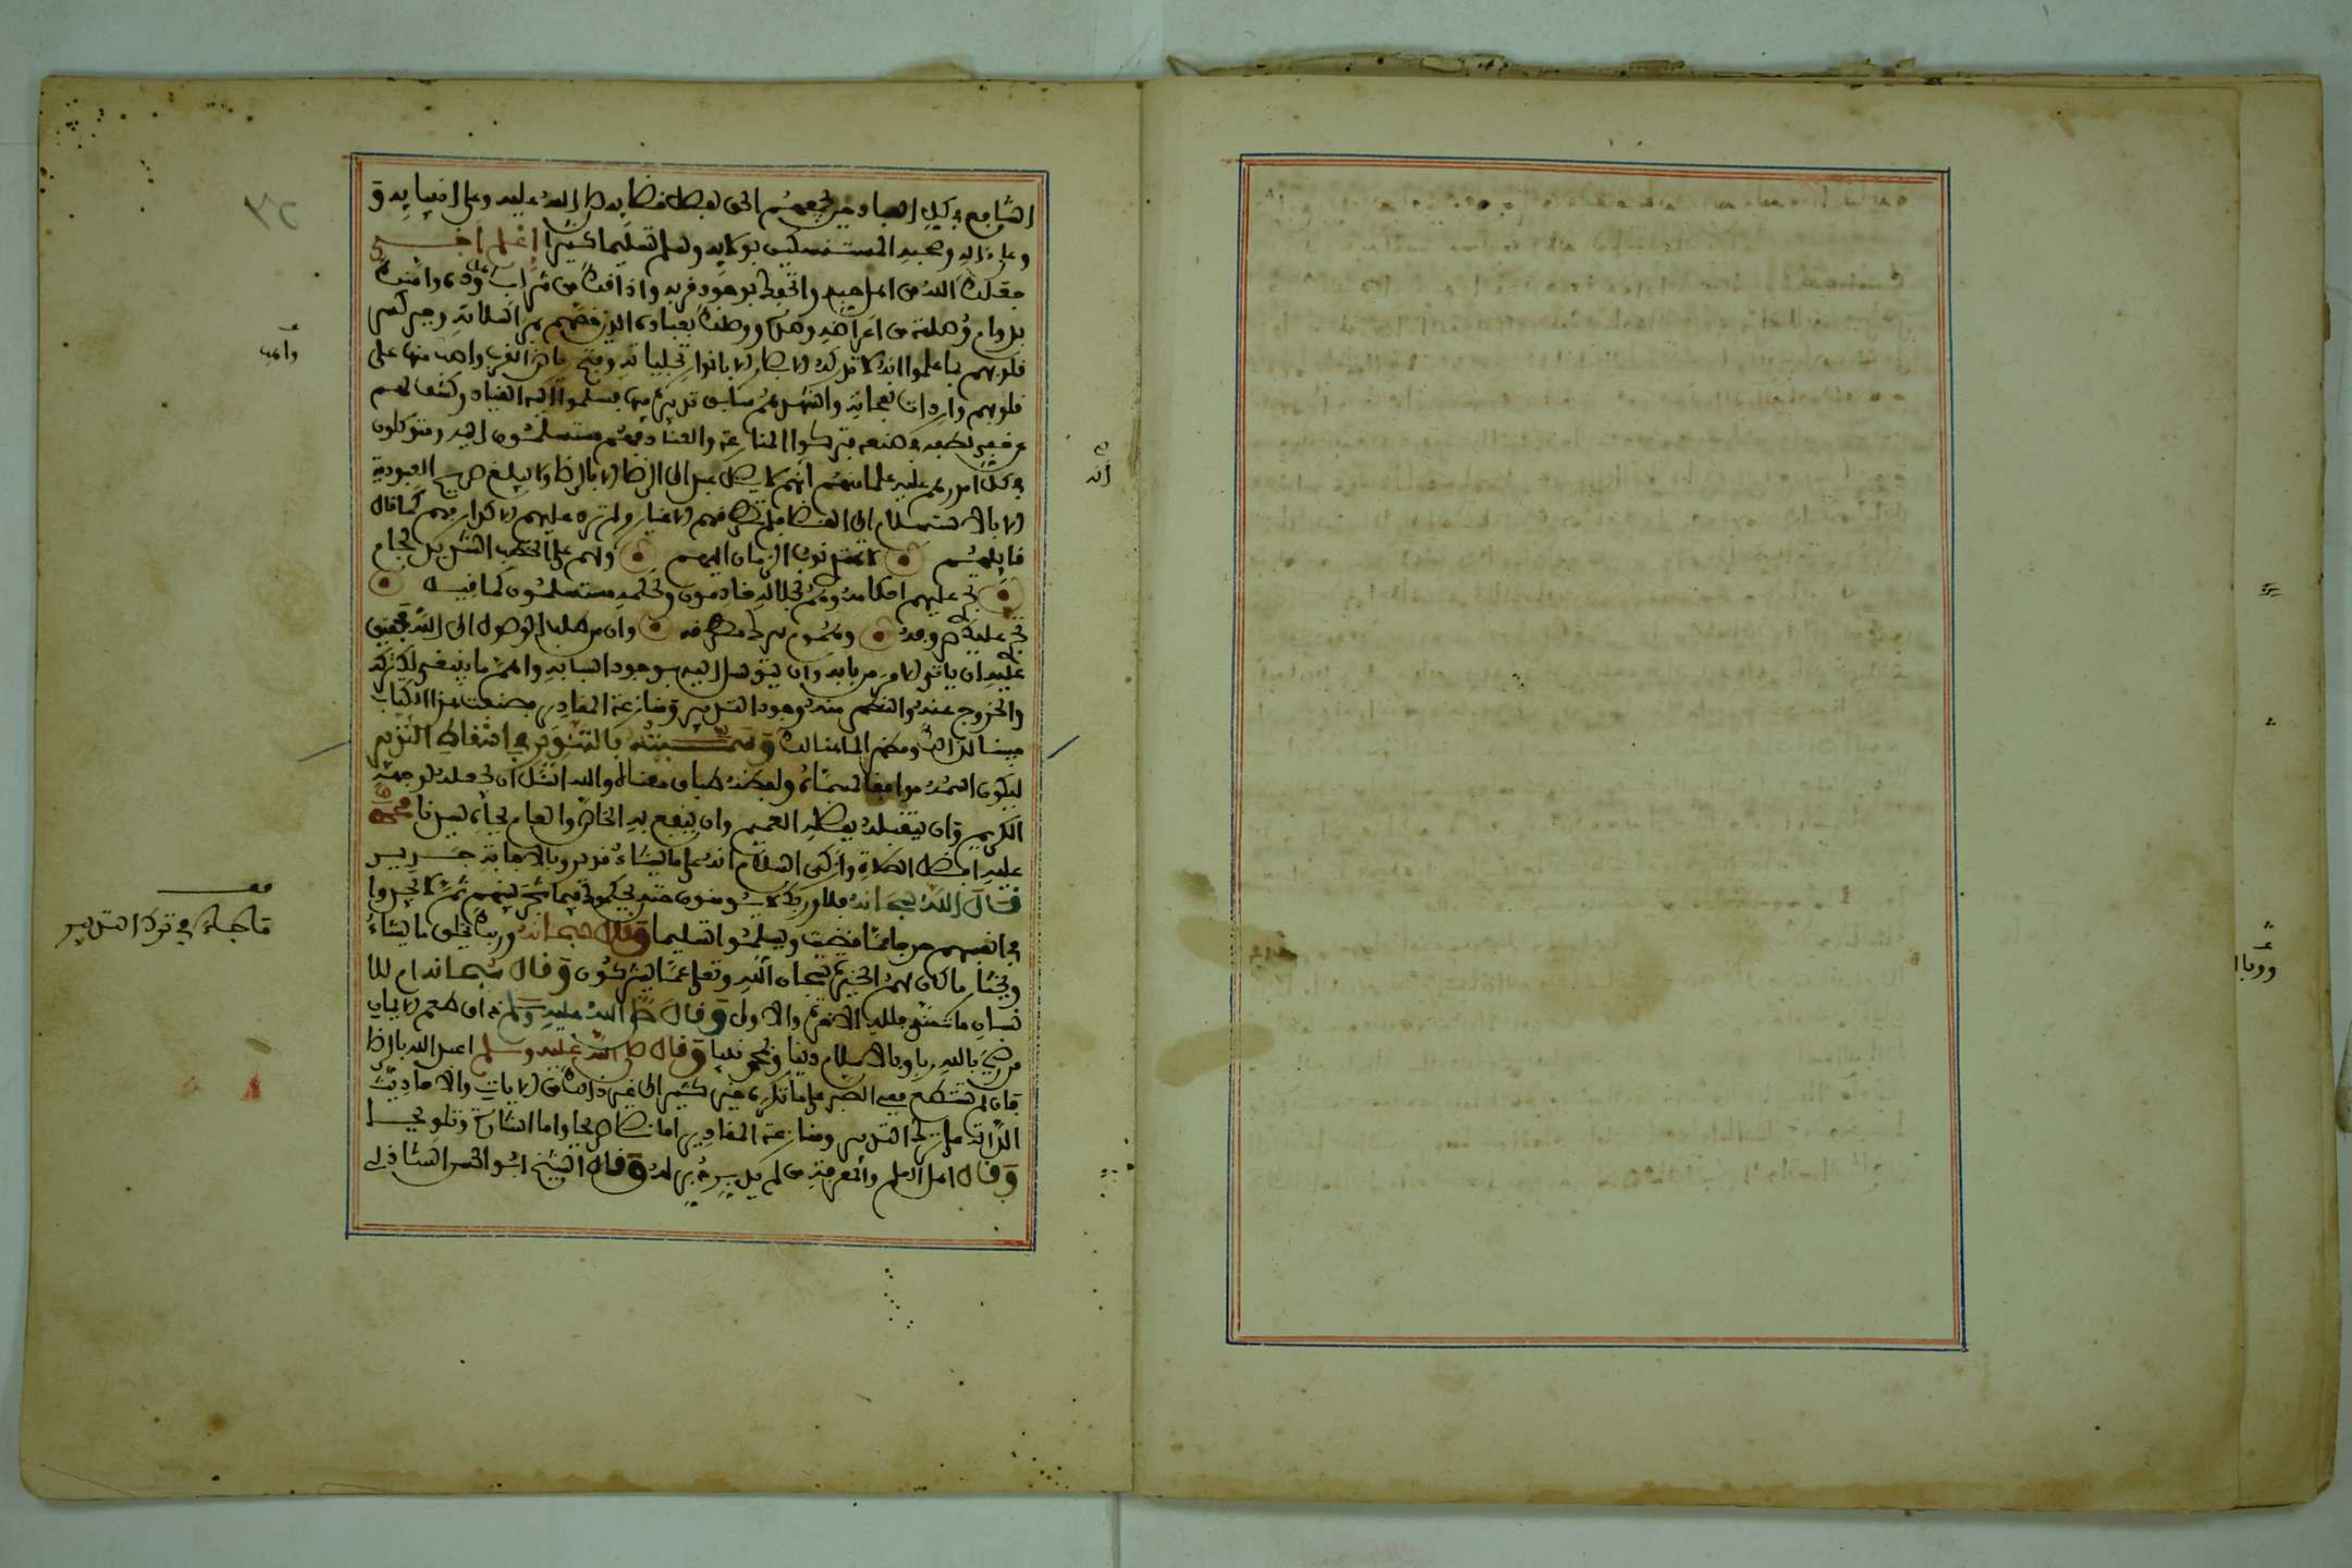 الشافع في كل العباد حين يجمعهم الحق لفصل قضايه صلى الله عليه وعلى انبيايه و
وعلى ءاله وصحبه المستمسكين بولايه وسلم تسليما كثيرا اعلم اخي
جعلك الله من اهل حبه واتحفك بوجود قربه واذاقك من شراب اهل وده وامنك
بدوام وصلته من اعراضه وصده ووصلك بعباده الذين خصهم بمراسلاته وجبر كسر
قلوبهم لما علموا انه لا تدركه الابصار الا بانوار تجلياته وفتح رياض القرب واهب منها على
قلوبهم واردات نفحاته واشهدهم سابق تدبيره فيهم فسلموا اليه القياد وكشف لهم
عن خفي لطفه في صنعه فتركوا المنازعة والعناد فهم مستسلمون اليه ومتوكلون
في كل امورهم عليه علما منهم انهم لا يصل عبد الى الرضا الا بالرضا ولا يبلغ صريح العبودية
الا بالاستسلام الى القضا فلم تطرقهم الاغيار ولم ترد عليهم الاكدار فهم كما قال
قايلهم لا تهتدي نوب الزمان اليهم ولهم على الخطب الشديد لجام
تجري عليهم احكامه وهم لجلاله خاضعون ولحكمه مستسلمون كما قيل
تجري عليك صروفه وهموم سرك مطرقه وان من طلب الوصول الى الله فحقيق
عليه ان ياتي الامر من بابه وان يتوصل اليه بوجود اسبابه واهم ما ينبغي لك تركه
والخروج عنه والتطهر منه وجود التدبير ومنازعة المقادير فصنعت هذا الكتاب
مبينا لذلك ومظهرا لما هنالك وسميته بالتنوير في اسقاط التدبير
ليكون اسمه موافقا لمسماه ولفظه طباق معناه والله اسئل ان يجعله لوجهه
الكريم وان يتقبله بفضله العميم وان ينفع به الخاص والعام بجاه سيدنا محمد
عليه افضل الصلاة وازكى السلام انه على ما يشاء قدير وبالاجابة جدير
قال الله سبحانه فلا وربك لا يومنون حتى يحكموك فيما شجر بينهم ثم لا يجدوا
في انفسهم حرجا مما قضيت ويسلموا تسليما وقال سبحانه وربك يخلق ما يشاء
ويختار ما كان لهم الخيرة سبحان الله وتعلى عما يشركون وقال سبحانه ام للا
نسان ما تمنى فلله الاخرة والاولى وقال صلى الله عليه وسلم ذاق طعم الايمان
من رضي بالله ربا وبالاسلام دينا وبمحمد نبيا وقال صلى الله عليه وسلم اعبد الله بالرضا
فان لم تستطع ففي الصبر على ما تكره خير كثير الى غير ذلك من الايات والاحاديث
الدالة على ترك التدبير ومنازعة المقادير اما نصا صريحا واما اشارة وتلويحا
وقال اهل العلم والمعرفة من لم يدبر دبر له وقال الشيخ ابو الحسن الشاذلي
واهب
انه
قف
ما جاء في ترك التدبير
٣٢